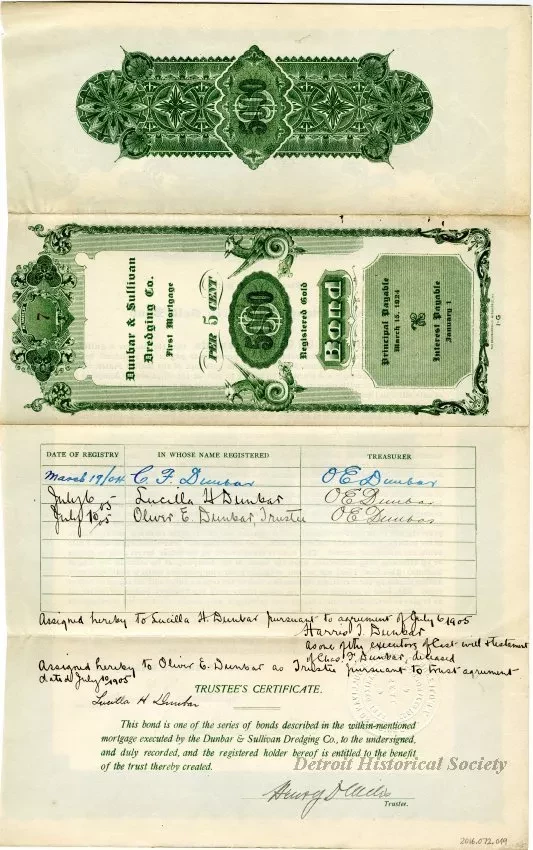 5000
7
Dunbar & Sullivan
Dredging Co.
First Mortgage
PER 5 CENT
5000
Registered Gold
Bond
Principal Payable
March 15, 1924
Interest Payable
January 1
DATE OF REGISTRY IN WHOSE NAME REGISTERED TREASURER
March 19/04 C. F. Dunbar O E Dunbar
July 6 05 Lucilla H Dunbar O E Dunbar
July 10 05 Oliver E. Dunbar, Trustee O E Dunbar
Assigned hereby to Lucilla H. Dunbar pursuant to agreement of July 6 1905
Harris T. Dunbar
as one of the executors of last will & testament
of Chas. F. Dunbar, deceased
Assigned hereby to Oliver E. Dunbar as Trustee pursuant to trust agreement
dated July 10 1905
Lucilla H Dunbar
TRUSTEE'S CERTIFICATE.
This bond is one of the series of bonds described in the within-mentioned
mortgage executed by the Dunbar & Sullivan Dredging Co., to the undersigned,
and duly recorded, and the registered holder hereof is entitled to the benefit
of the trust thereby created.
Detroit Historical Society
Henry
Trustee.
2016.072.049